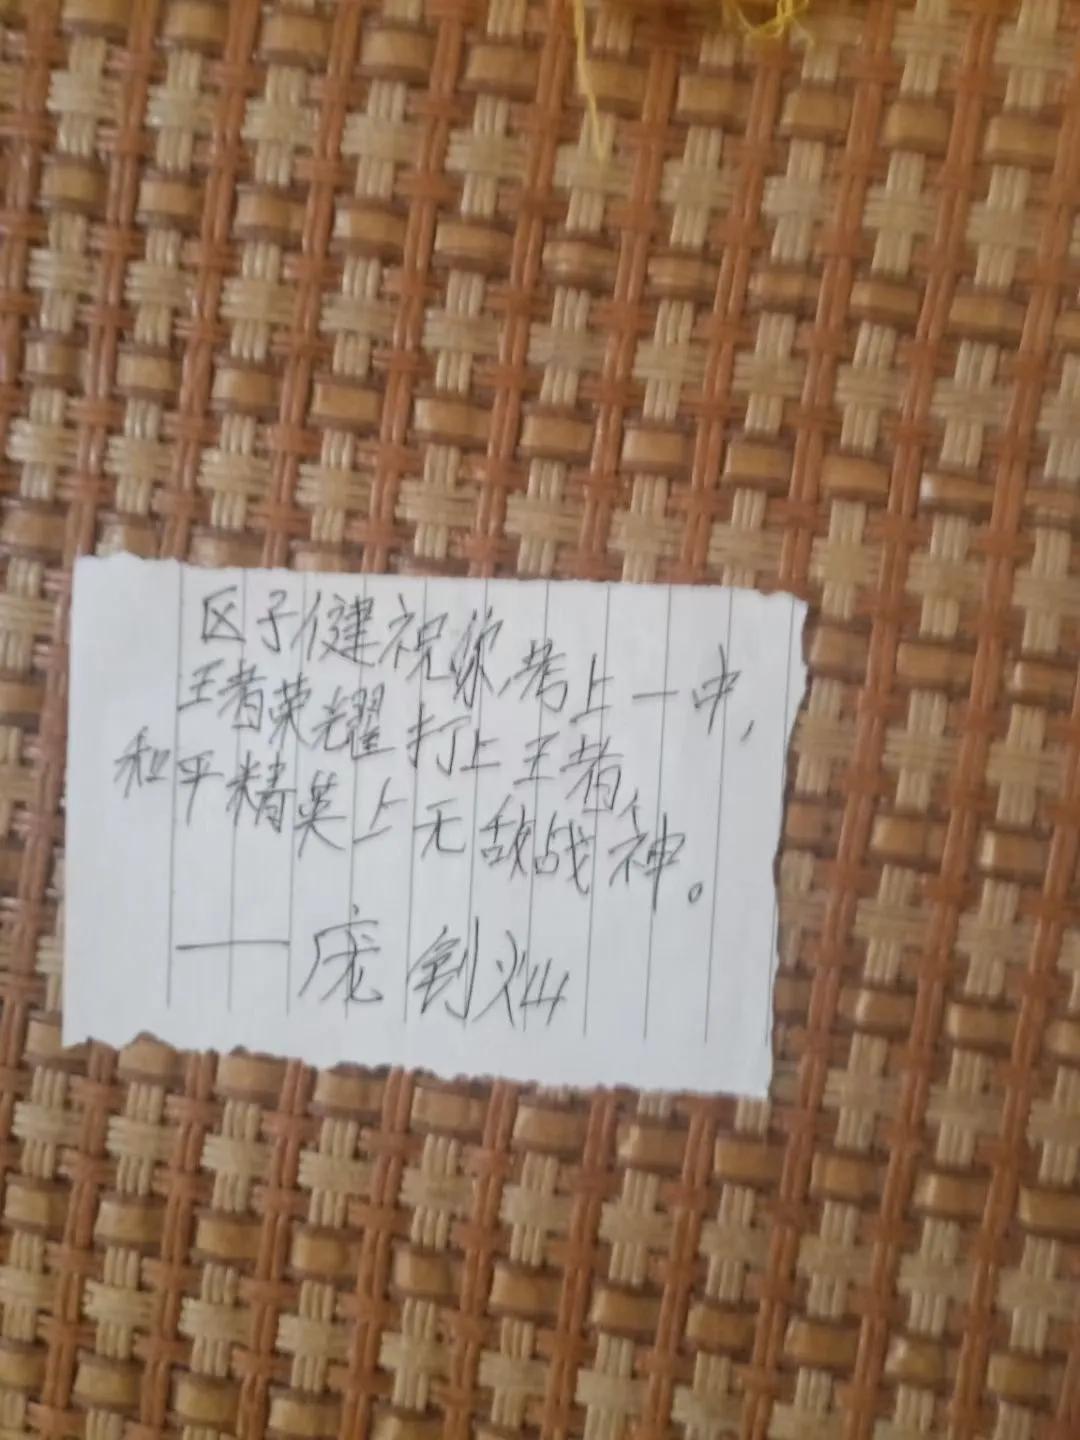 区子健祝你,考上一中,
王者荣耀打上王者,
和平精英上无敌战神。
——庞钊灿